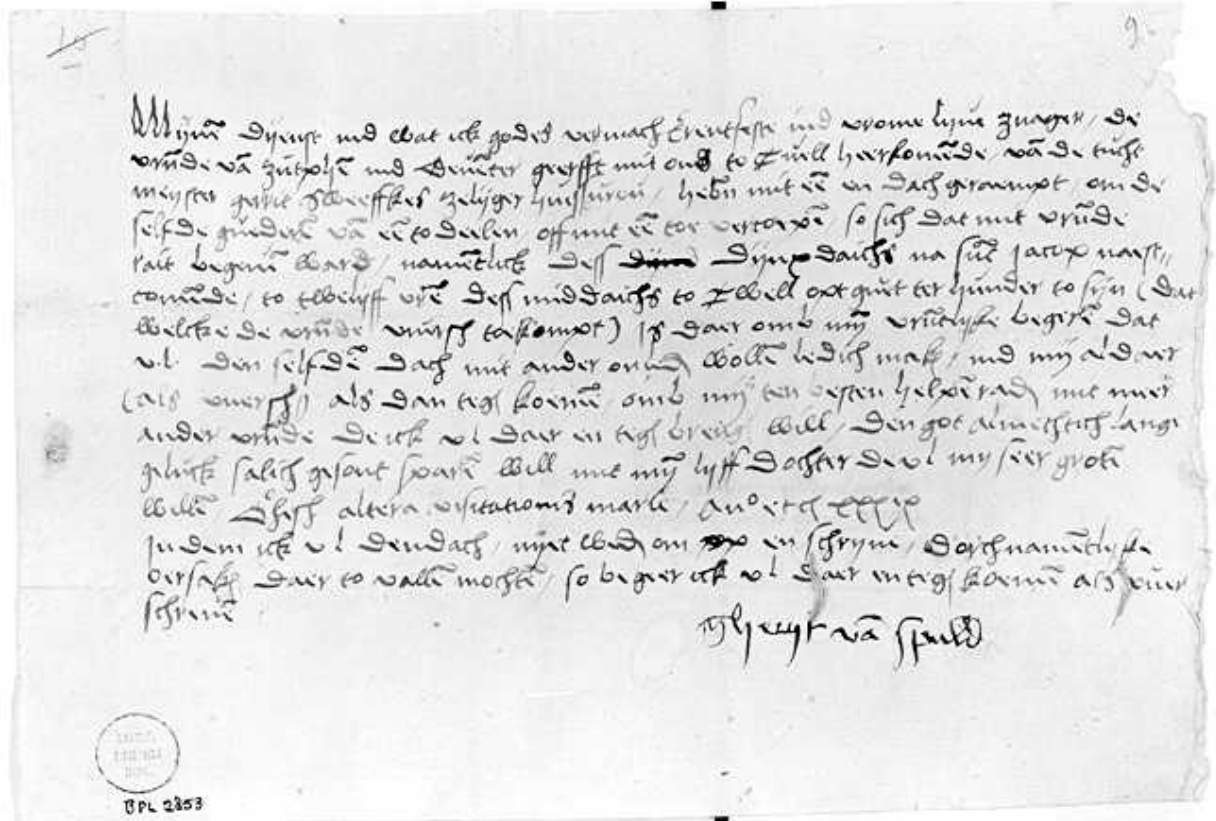 9
Mijnen dijenst ind wat ick godes vermach Erentfeste ind vrome lyue zwager, de
vrunde va zutphen ind deueter geerfft mit ons to Twell heerkomende, va de tucht
meyster gerit sweeffkes zelyger huysfrou, hebn mit ee en dach geraempt, om de
selfde guedere va ee to deelen, off mit ee toe, so sich dat mit vrunde
rait begeuen ward, namentlick dess dijnxdaichs na sut Jacop naest
comende, to twelff vre dess middaichs to Twell opt guet ter hunder to sijn (dat
welcke de vrunde toekompt) Is daer omb my vruntlyke begere dat
vl den selfde dach mit ander wolle ledich mak, ind my aldaer
(als) als dan teg koeme, omb my ten besten helpe rad mit meer
ander vrunde de ick vl daer en teg will, den got almechtich lange
geluck salich gesont spare will mit my lyff dochter de vl my seer grote
wille, altera visitationis marie, Ano etc xxxix
Indem ick vl den dach, nyet wed om en schryue, dorch namentlyke
oersake daer to valle mochte, so begeer ick vl daer en teg koeme als
schreue
va
BPL 2853